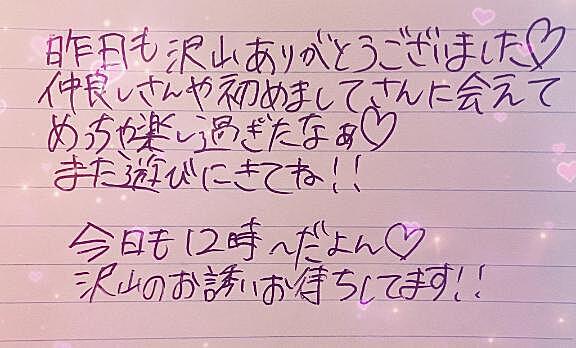 昨日も沢山ありがとうございました♡
仲良しさんや初めましてさんに会えて
めっちゃ楽しう過ぎたなぁ♡
また遊びにきてね!!
今日も12時〜だよん♡
沢山のお誘いお待ちしてます!!